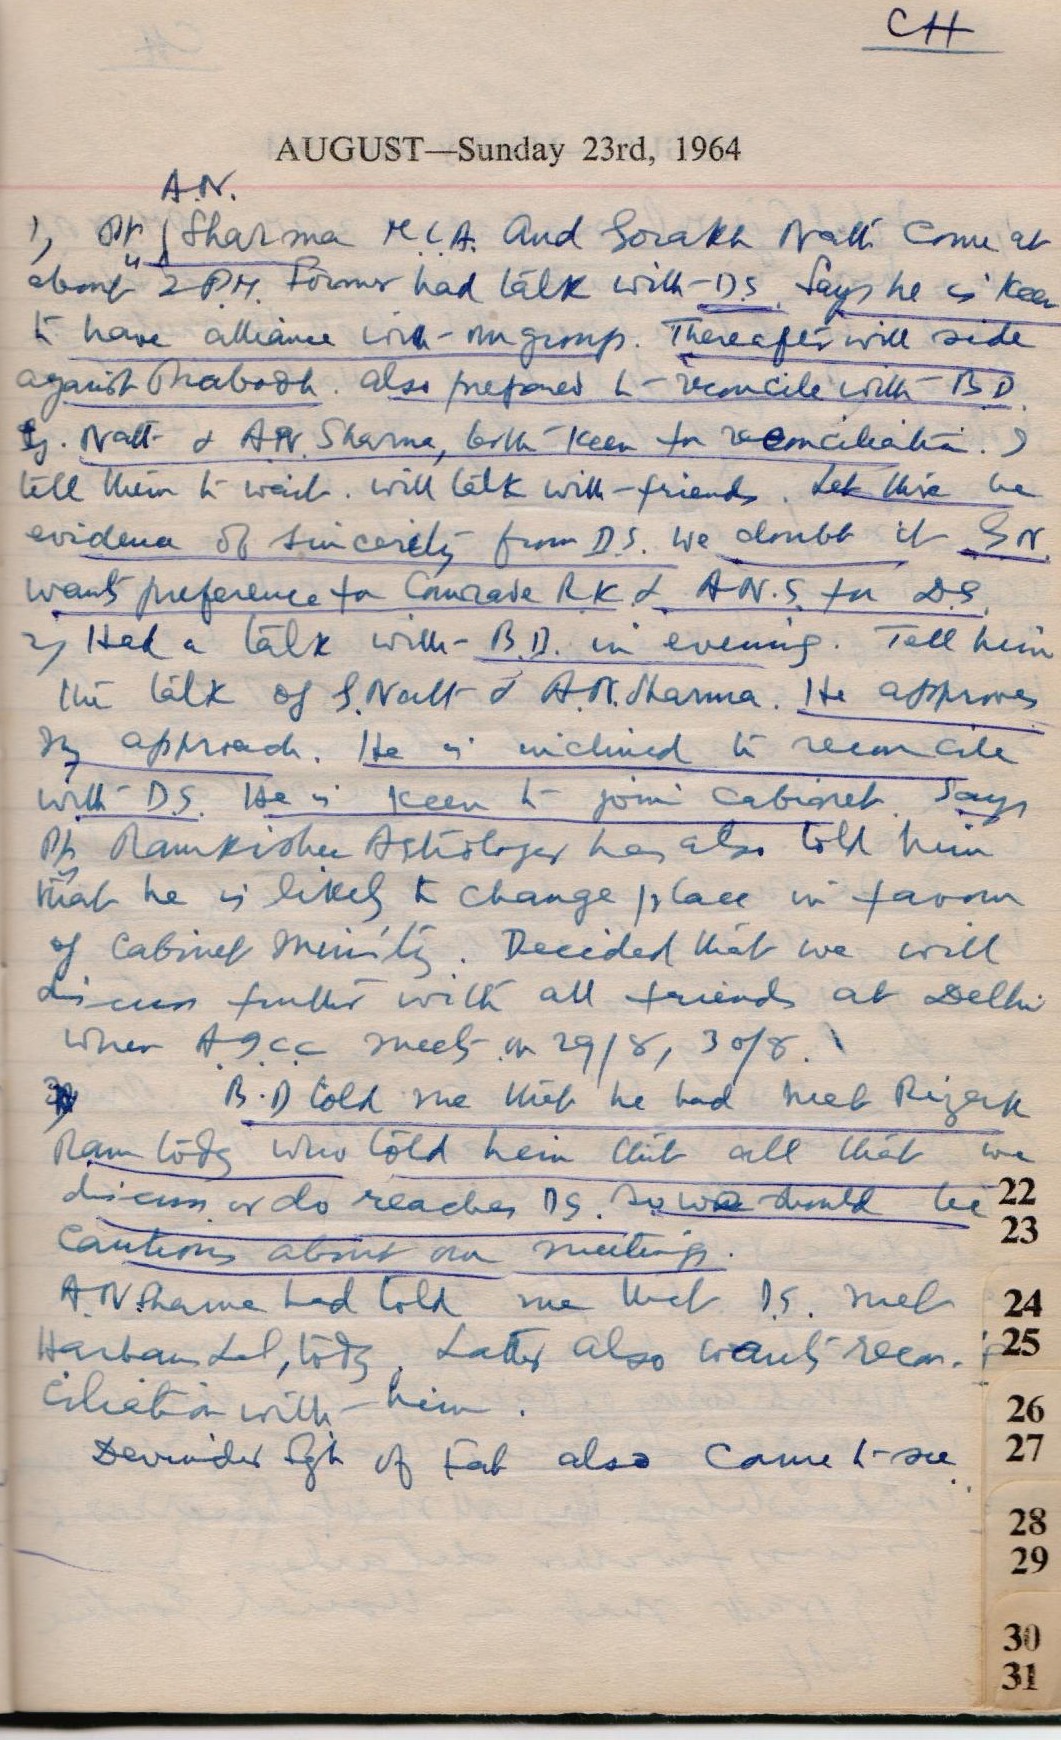 CH
AUGUST—Sunday 23rd, 1964
A.N.
1) Pt. Sharma M.L.A. And Gorakh Nath Come at
about 2 P.M. Former had talk with D.S. Says he is keen
to have alliance with our group. Thereafter will side
against Prabodh. Also prepared to reconcile with B.D.
G. Nath & A.N. Sharma, both keen for reconciliation. I
tell them to wait. will talk with friends. Let there be
evidence of sincerity from D.S. we doubt it G.N.
wants preference for Comrade R.K. & A.N.S. for D.S.
2) Had a talk with B.D. in evening. Tell him
the talk of G. Nath & A.N. Sharma. He approves
my approach. He is inclined to reconcile
with D.S. He is keen to join cabinet. Says
Pt. Ramkishen Astrologer has also told him
that he is likely to change place in favour
of Cabinet Ministry. Decided that we will
discuss further with all friends at Delhi
when A I C C meets on 29/8, 30/8.
3) B.D told me that he had met Rizak
Ram today who told him that all that we
discuss or do reaches D.S. So we should be
Cautious about our meetings.
A.N. Sharma had told me that D.S. met
Harbans Lal, today. Latter also wants recon-
ciliation with him.
Devinder Sgh of Fab also Came to see.
22
23
24
25
26
27
28
29
30
31